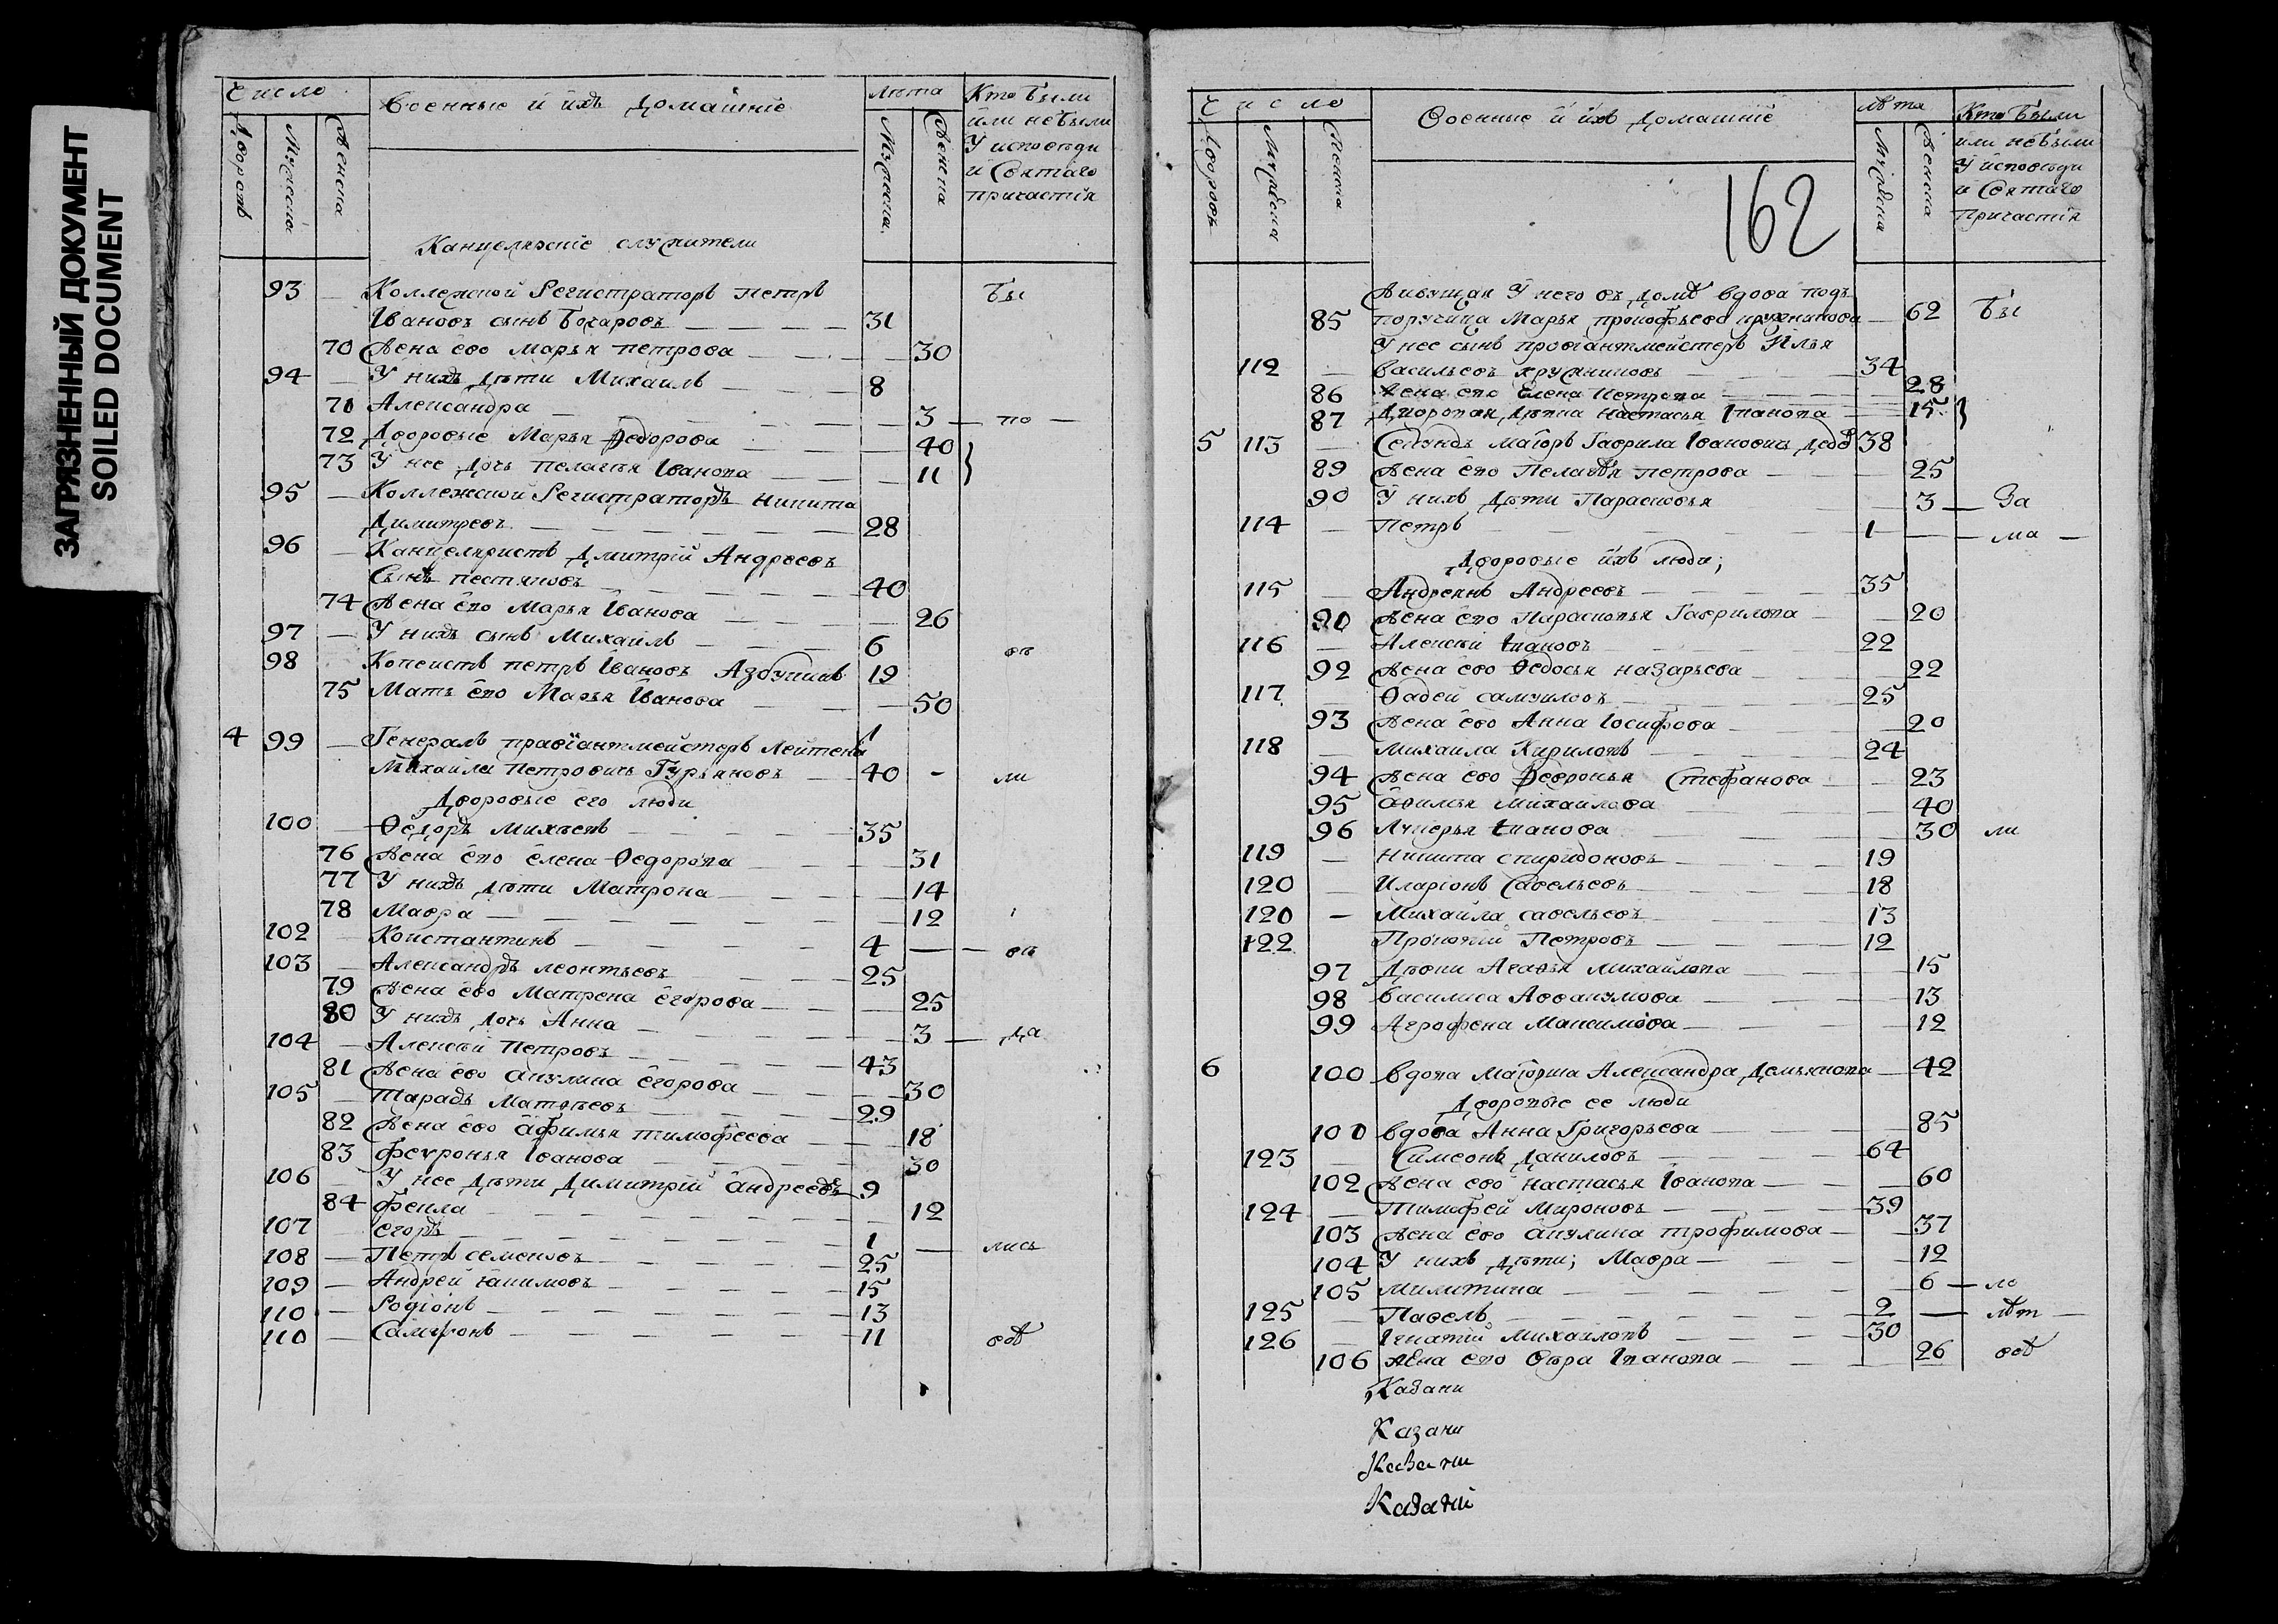 ЗАГРЯЗНЕННЫЙ ДОКУМЕНТ
SOILED DOCUMENT
Число
Военные и ихъ домашние
Лѣта
Кто были
или не были
У исповѣди
и Святаго
причастїя
Дворовъ
Мужеска
Женска
Мужеска
Женска
Канцелярскїе служители
93 — Коллежской Регистраторъ петръ Бы
Ивановъ сынъ Бочаровъ 31
70 Жена ево Марья петрова 30
94 — У нихъ дѣти Михаилъ 8
71 Александра 3 — по —
72 Дворовые Марья Ѳедорова 40
73 У нее дочь пелагея Iванова 11
95 — Коллежской Регистраторъ никита
Димитревъ 28
96 — Канцеляристъ Дмитрїй Андреевъ
Сынъ 40
74 Жена его Марья Iванова 26
97 — У нихъ сынъ Михаилъ 6
98 Копеистъ петръ Iвановъ 19
75 Мать его Марья Iванова 50
4 99 — Генералъ правїантмейстеръ лейтенантъ
Михайла петровичъ Гурьяновъ 40 - ли
Дворовые его люди
100 — Ѳедоръ михѣевъ 35
76 Жена его елена Ѳедорова 31
77 У нихъ дѣти Матрона 14
78 Мавра 12
102 Константинъ 4
103 — Александръ леонтьевъ 25
79 Жена ево Матрена Егорова 25
80 У нихъ дочь Анна 3 — да
104 — Алексѣй петровъ 43
81 Жена ево акулина Егорова 30
105 — Тарасъ Матвѣевъ 29
82 Жена ево афимья тимофеева 18
83 февронья Iванова 30
106 — У нее дѣти Димитрїй андреевъ 9
84 фекла 12
107 егоръ 1 — лись
108 — Петръ семеновъ 25
109 — Андрей 15
110 — Родїонъ 13
110 — Самсонъ 11
Число
Военные и ихъ домашнїе
лѣта
Кто были
или не были
У исповѣди
и Святаго
Причастїя
Дворовъ
Мужеска
Женска
Мужеска
Женска
162
Живущая У него въ домѣ вдова подъ
85 поручица Марья прокофьева 62 Бы
У нее сынъ провїантмейстеръ Илья
112 — васильевъ 34
86 Жена его Елена Петрова 28
87 Дворовая дѣвка настасья Iванова 15
5 113 — Секундъ маїоръ Гаврила Iвановичъ 38
89 Жена его Пелагѣя петрова 25
90 У нихъ дѣти Парасковья 3 — За
114 — Петръ 1 — ма —
Дворовые ихъ люди;
115 — Андреянъ Андреевъ 35
90 Жена его Парасковья Гаврилова 20
116 — Алексѣй Iвановъ 22
92 Жена ево Ѳедосья назарьева 22
117 — Ѳадей самуиловъ 25
93 Жена ево Анна Iосифова 20
118 — михаила Кириловъ 24
94 Жена ево Февронья Стефанова 23
95 Афимья михаилова 40
96 Лукерья Iванова 30 ли
119 — никита спиридоновъ 19
120 — Иларїонъ Савельевъ 18
120 — Михаила савельевъ 13
122 Прокопїй Петровъ 12
97 Дѣвки Агафья михайлова 15
98 василиса Аввакумова 13
99 Агрофена Максимова 12
6 100 вдова маїорша Александра Демьянова 42
Дворовые ее люди
101 вдова Анна Григорьева 85
123 — Симеонъ даниловъ 64
102 Жена ево настасья Iванова 60
124 — Тимофей Мироновъ 39
103 Жена ево акулина трофимова 37
104 У нихъ дѣти; Мавра 12
105 милитина 6 — ло
125 — Павелъ 2 — лѣт —
126 — Iгнатїй михаиловъ 30
106 Жена его Iванова 26
Казани
Казани
Казани
Казани